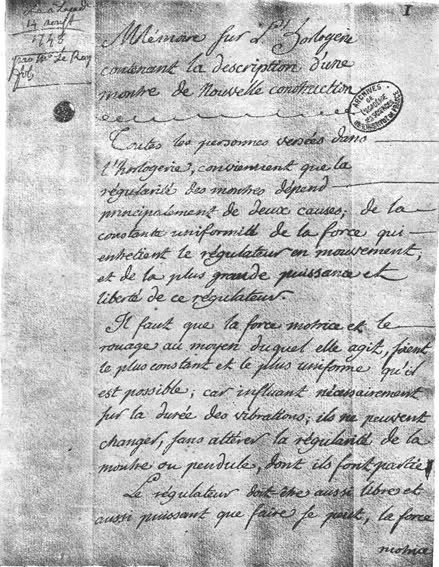 Lu à l'acad.
14 aoust
1748
par Mr. Le Roy
fils
1
Mémoire sur L'Horlogerie
contenant la description d'une
montre de Nouvelle construction
ARCHIVES
DE
L'ACADÉMIE
DES SCIENCES
INSTITUT DE FRANCE
Toutes les personnes versées dans
l'horlogerie, conviennent que la
régularité des montres dépend
principalement de deux causes; de la
constante uniformité de la force qui
entretient le régulateur en mouvement,
et de la plus grande puissance et
liberté de ce régulateur.
Il faut que la force motrice et le
rouage au moyen duquel elle agit, soient
le plus constant et le plus uniforme qu'il
est possible; car influant nécessairement
sur la durée des vibrations; ils ne peuvent
changer, sans altérer la régularité de la
montre ou pendule, dont ils font partie
Le régulateur doit être aussi libre et
aussi puissant que faire se peut, la force
motrice